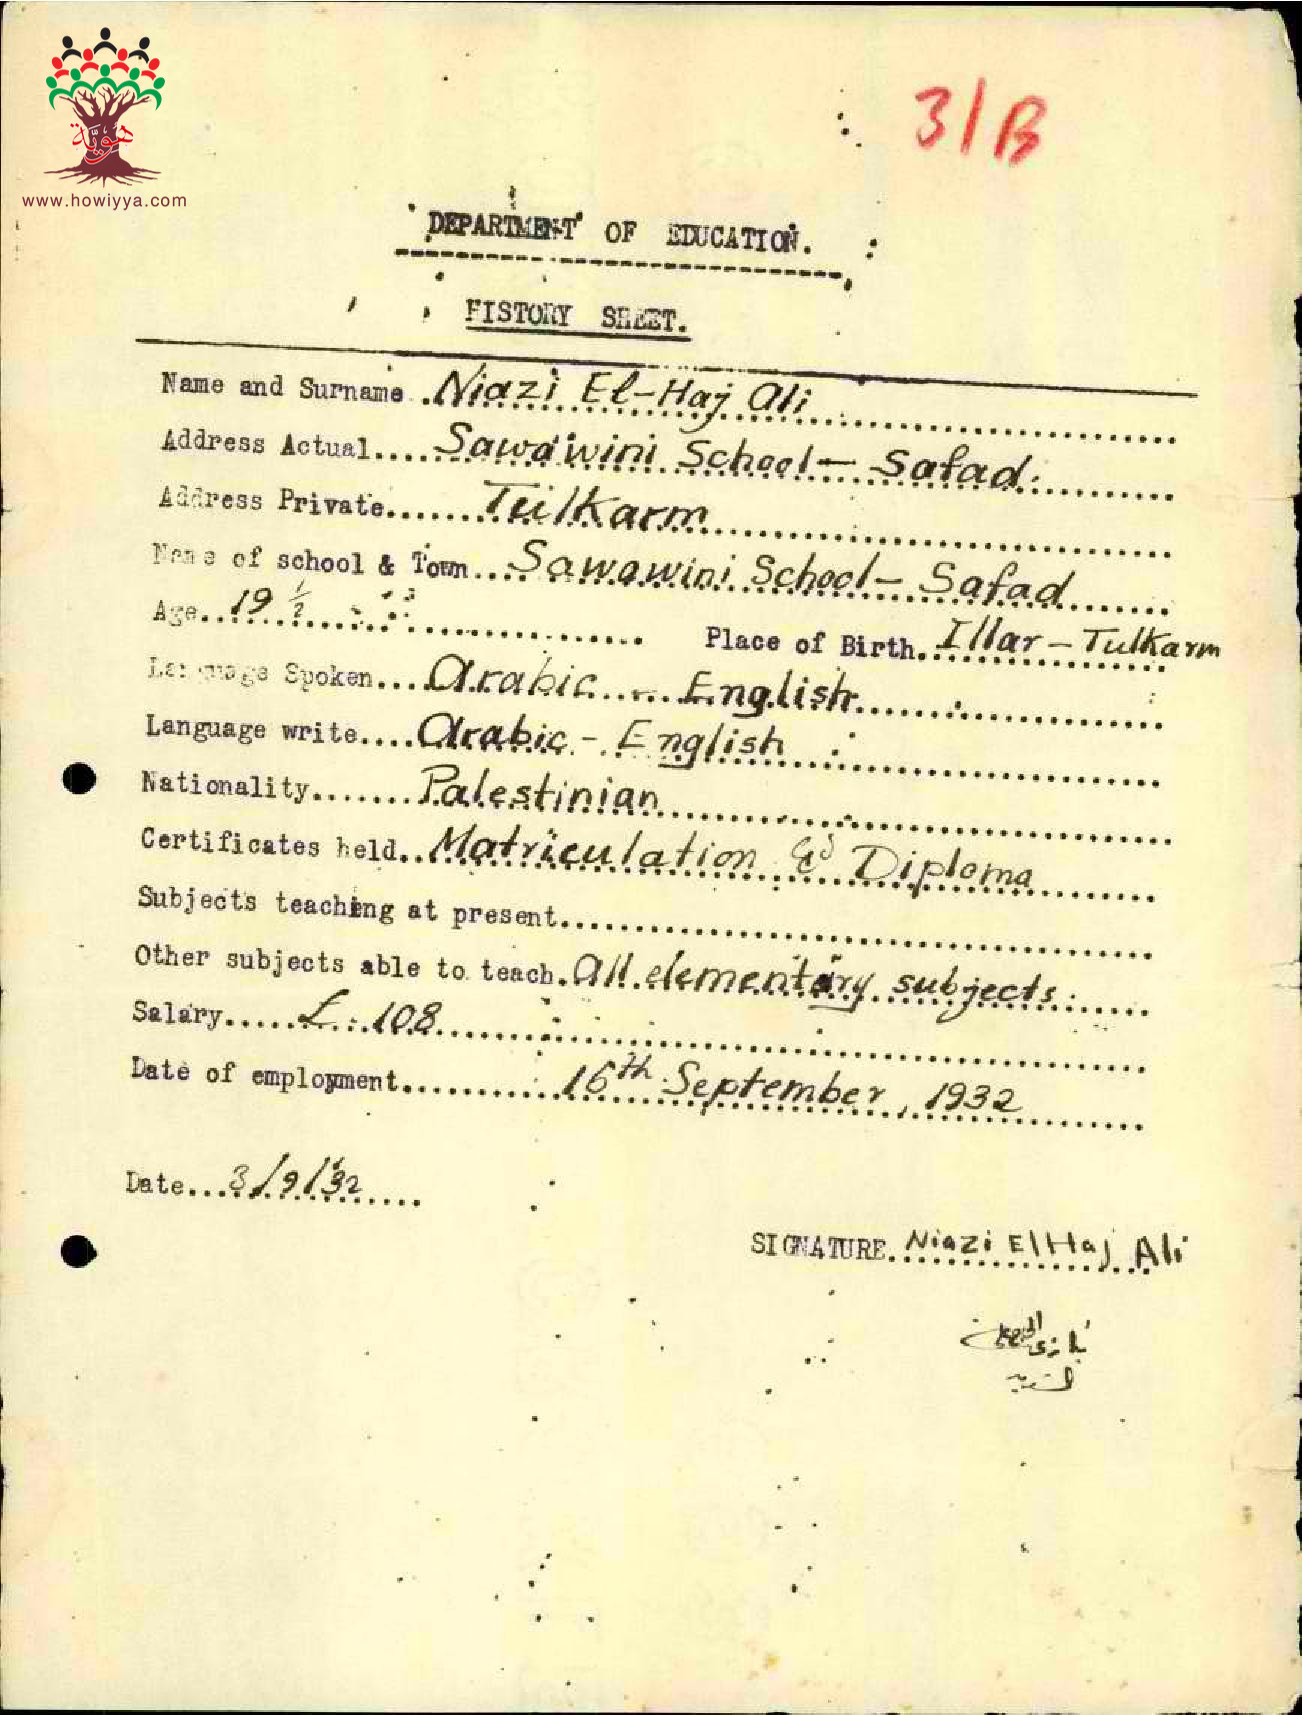 هويّة
www.howiyya.com
3/B
DEPARTMENT OF EDUCATION.
HISTORY SHEET.
Name and Surname. Niazi El-Haj Ali
Address Actual..... Sawawini School - Safad.
Address Private....... Tulkarm
Name of school & Town.... Sawawini School - Safad
Age.. 19 1/2 Place of Birth. Illar - Tulkarm
Language Spoken.... Arabic - English
Language write.... Arabic - English
Nationality....... Palestinian
Certificates held.. Matriculation & Diploma
Subjects teaching at present
Other subjects able to teach. All elementary subjects.
Salary..... £. 108
Date of employment........ 16th September, 1932
Date... 3/9/32
SIGNATURE. Niazi El Haj Ali
نيازي الحج